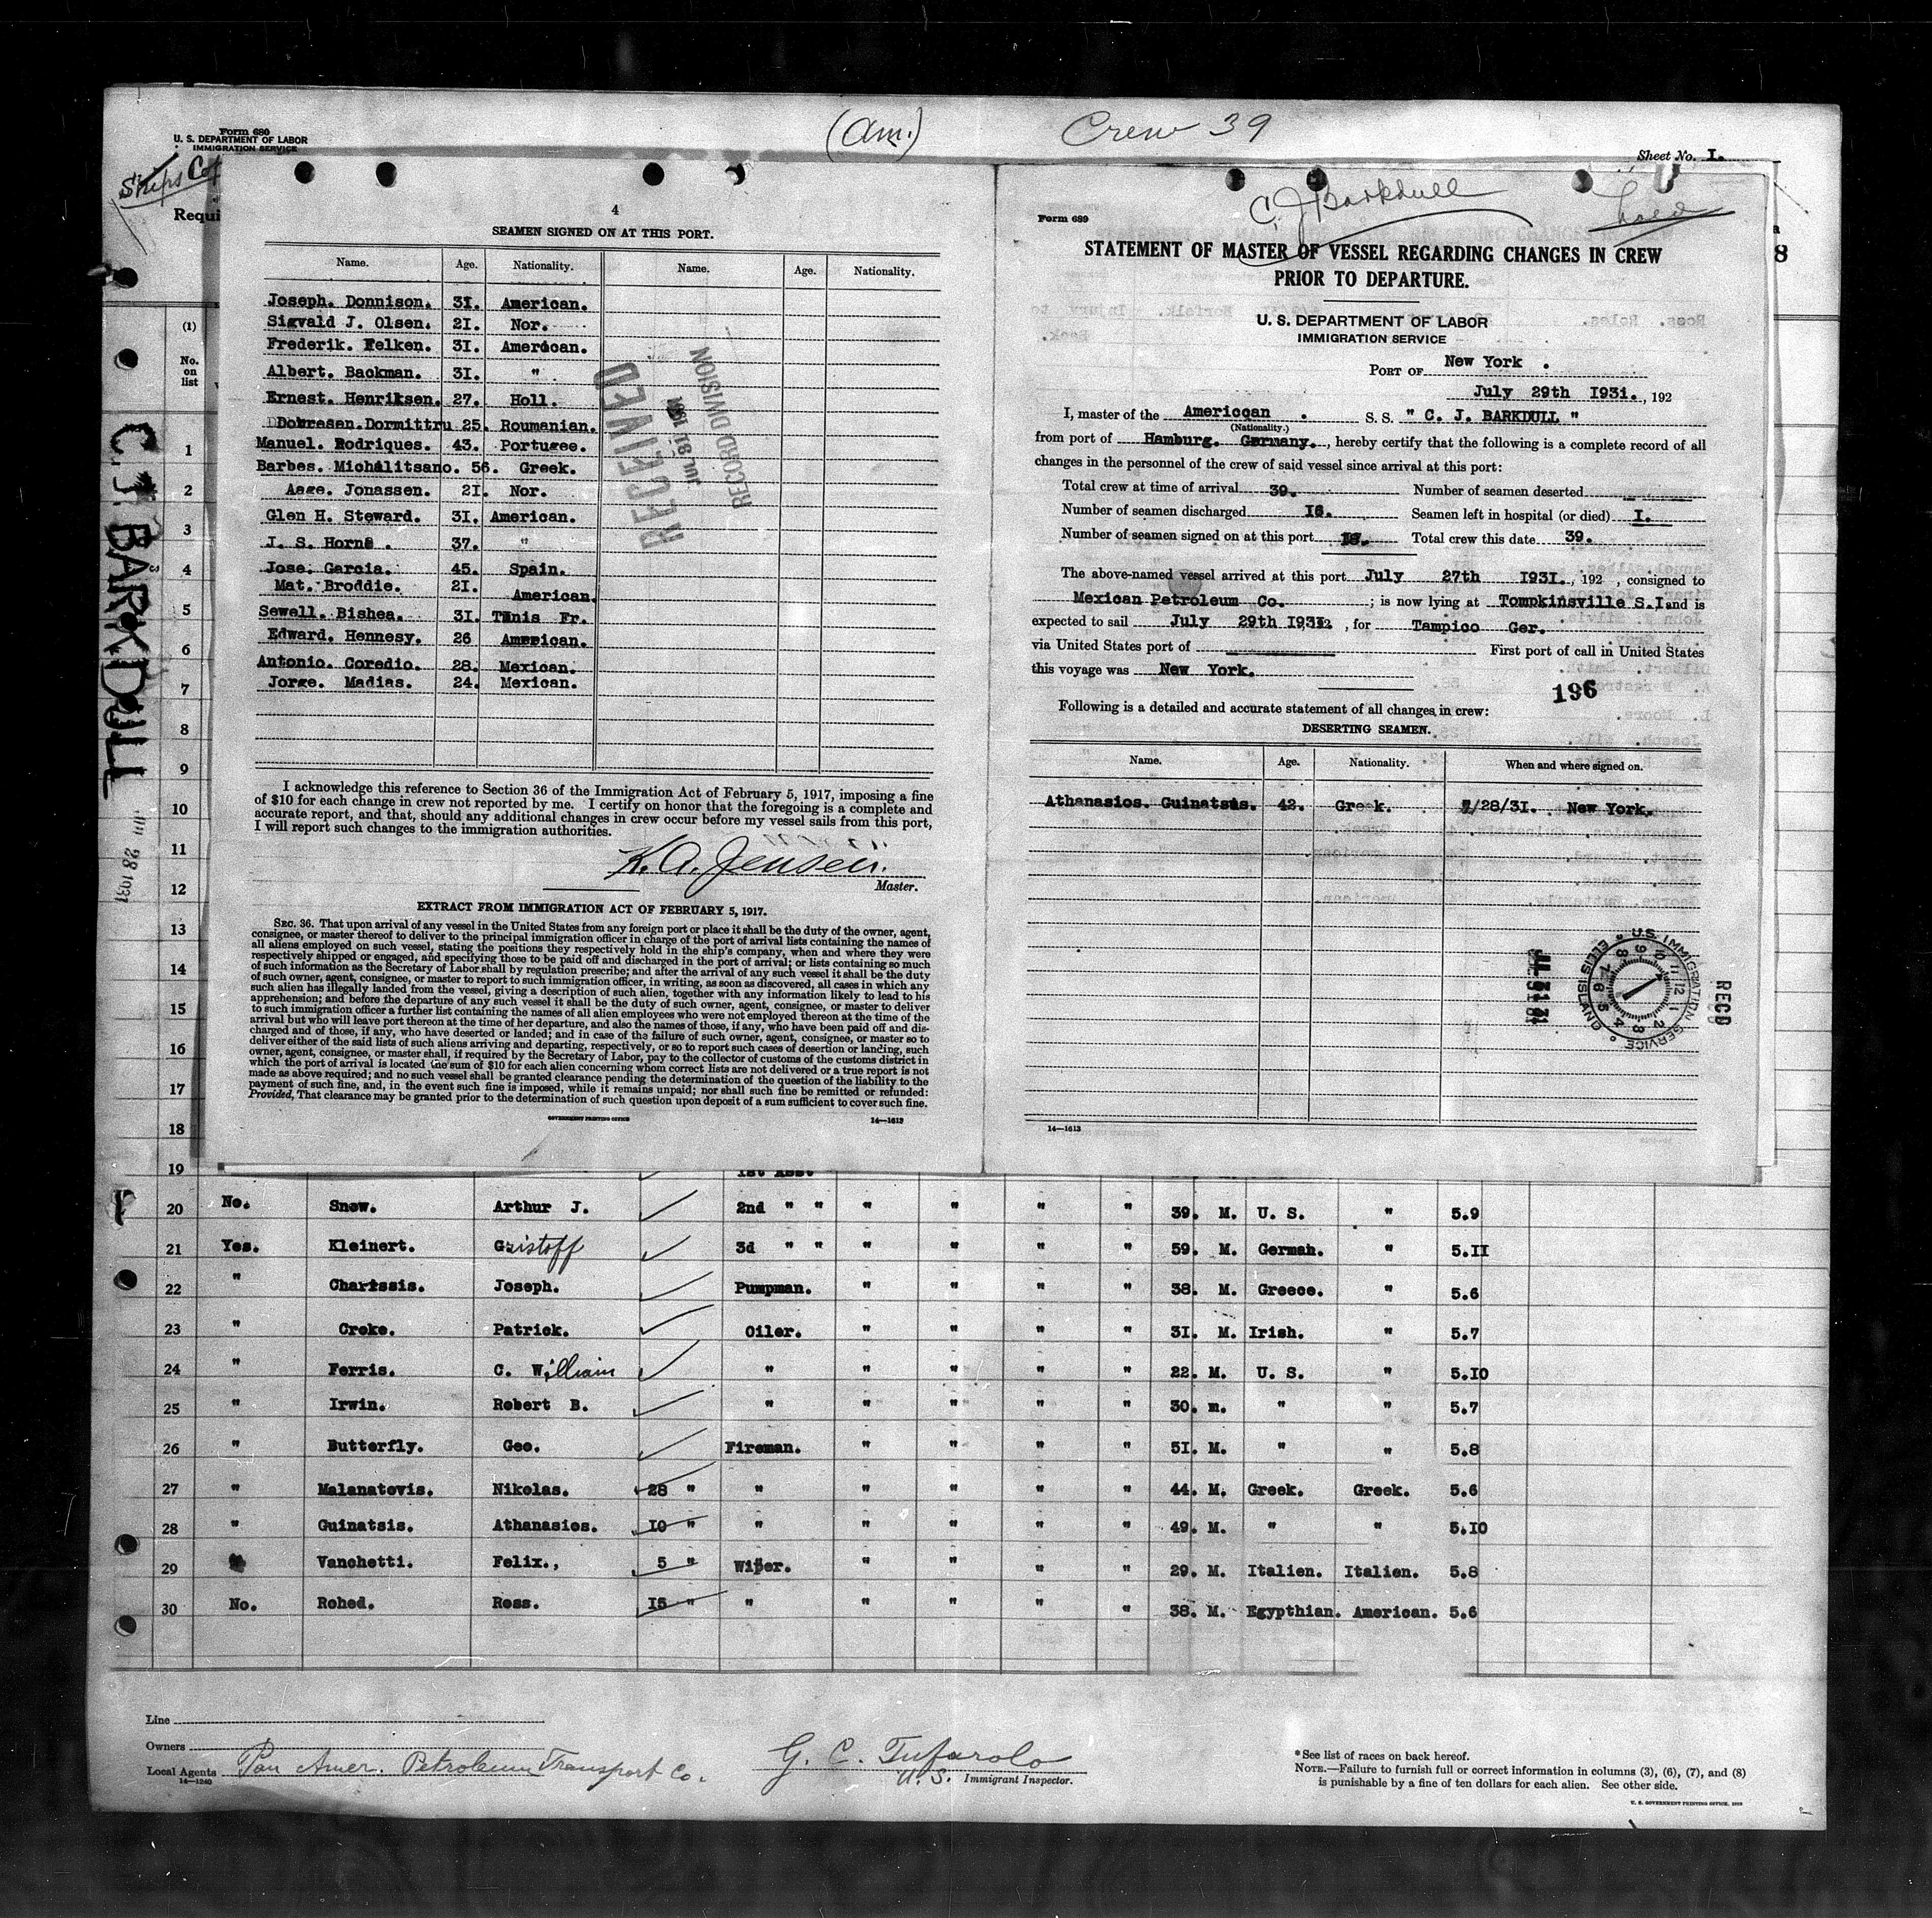 Form 680
U. S. DEPARTMENT OF LABOR
IMMIGRATION SERVICE
(Am.)
Crew 39
Sheet No. I.
Ships Co
Requi
(1)
No.
on
list
C. J. BARKDULL
4
SEAMEN SIGNED ON AT THIS PORT.
Name. Age. Nationality. Name. Age. Nationality.
Joseph. Donnison. 31. American.
Sigvald J. Olsen. 21. Nor.
Frederik. Felken. 31. American.
Albert. Backman. 31. "
Ernest. Henriksen. 27. Holl.
Dobresan. Dormittru 25. Roumanian.
Manuel. Rodriques. 43. Portugee.
Barbes. Michalitsano. 56. Greek.
Aage. Jonassen. 21. Nor.
Glen H. Steward. 31. American.
J. S. Horne . 37. "
Jose. Garcia. 45. Spain.
Mat. Broddie. 21. American.
Sewell. Bishea. 31. Tunis Fr.
Edward. Hennesy. 26 American.
Antonio. Coredio. 28. Mexican.
Jorge. Madias. 24. Mexican.
RECEIVED
JUL 31 1931
RECORD DIVISION
I acknowledge this reference to Section 36 of the Immigration Act of February 5, 1917, imposing a fine
of $10 for each change in crew not reported by me. I certify on honor that the foregoing is a complete and
accurate report, and that, should any additional changes in crew occur before my vessel sails from this port,
I will report such changes to the immigration authorities.
K. A. Jensen.
Master.
EXTRACT FROM IMMIGRATION ACT OF FEBRUARY 5, 1917.
SEC. 36. That upon arrival of any vessel in the United States from any foreign port or place it shall be the duty of the owner, agent,
consignee, or master thereof to deliver to the principal immigration officer in charge of the port of arrival lists containing the names of
all aliens employed on such vessel, stating the positions they respectively hold in the ship's company, when and where they were
respectively shipped or engaged, and specifying those to be paid off and discharged in the port of arrival; or lists containing so much
of such information as the Secretary of Labor shall by regulation prescribe; and after the arrival of any such vessel it shall be the duty
of such owner, agent, consignee, or master to report to such immigration officer, in writing, as soon as discovered, all cases in which any
such alien has illegally landed from the vessel, giving a description of such alien, together with any information likely to lead to his
apprehension; and before the departure of any such vessel it shall be the duty of such owner, agent, consignee, or master to deliver
to such immigration officer a further list containing the names of all alien employees who were not employed thereon at the time of the
arrival but who will leave port thereon at the time of her departure, and also the names of those, if any, who have been paid off and dis-
charged and of those, if any, who have deserted or landed; and in case of the failure of such owner, agent, consignee, or master so to
deliver either of the said lists of such aliens arriving and departing, respectively, or so to report such cases of desertion or landing, such
owner, agent, consignee, or master shall, if required by the Secretary of Labor, pay to the collector of customs of the customs district in
which the port of arrival is located the sum of $10 for each alien concerning whom correct lists are not delivered or a true report is not
made as above required; and no such vessel shall be granted clearance pending the determination of the question of the liability to the
payment of such fine, and, in the event such fine is imposed, while it remains unpaid; nor shall such fine be remitted or refunded:
Provided, That clearance may be granted prior to the determination of such question upon deposit of a sum sufficient to cover such fine.
GOVERNMENT PRINTING OFFICE 14—1613
C. J. Barkdull
Form 689
STATEMENT OF MASTER OF VESSEL REGARDING CHANGES IN CREW
PRIOR TO DEPARTURE.
U. S. DEPARTMENT OF LABOR
IMMIGRATION SERVICE
PORT OF New York .
July 29th 1931. , 192
I, master of the American . S. S. " C. J. BARKDULL "
(Nationality.)
from port of Hamburg. Germany. , hereby certify that the following is a complete record of all
changes in the personnel of the crew of said vessel since arrival at this port:
Total crew at time of arrival 39. Number of seamen deserted
Number of seamen discharged 16. Seamen left in hospital (or died) I.
Number of seamen signed on at this port Total crew this date 39.
The above-named vessel arrived at this port July 27th 1931. , 192 , consigned to
Mexican Petroleum Co. ; is now lying at Tompkinsville S.I and is
expected to sail July 29th 1931 , for Tampico Ger.
via United States port of First port of call in United States
this voyage was New York.
196
Following is a detailed and accurate statement of all changes in crew:
DESERTING SEAMEN.
Name. Age. Nationality. When and where signed on.
Athanasios. Guinatsis. 42. Greek. 7/28/31. New York.
U. S. IMMIGRATION SERVICE ELLIS ISLAND
RECD
14—1613
1
2
3
4
5
6
7
8
9
10
11
12
13
14
15
16
17
18
19 1st Asst
20 No. Snow. Arthur J. 2nd " " " " " " 39. M. U. S. " 5.9
21 Yes. Kleinert. Gristoff 3d " " " " " " 59. M. German. " 5.11
22 " Charissis. Joseph. Pumpman. " " " " 38. M. Greece. " 5.6
23 " Croke. Patrick. Oiler. " " " " 31. M. Irish. " 5.7
24 " Ferris. C. William " " " " " 22. M. U. S. " 5.10
25 " Irwin. Robert B. " " " " " 30. m. " " 5.7
26 " Butterfly. Geo. Fireman. " " " " 51. M. " " 5.8
27 " Malanatovis. Nikolas. 28 " " " " " " 44. M. Greek. Greek. 5.6
28 " Guinatsis. Athanasios. 10 " " " " " " 49. M. " " 5.10
29 Vanchetti. Felix., 5 " Wiper. " " " " 29. M. Italien. Italien. 5.8
30 No. Rohed. Ross. 15 " " " " " " 38. M. Egypthian. American. 5.6
Line
Owners
Local Agents Pan Amer. Petroleum Transport Co.
14—1240
G. C. Tufarolo
U. S. Immigrant Inspector.
*See list of races on back hereof.
NOTE.—Failure to furnish full or correct information in columns (3), (6), (7), and (8)
is punishable by a fine of ten dollars for each alien. See other side.
U. S. GOVERNMENT PRINTING OFFICE